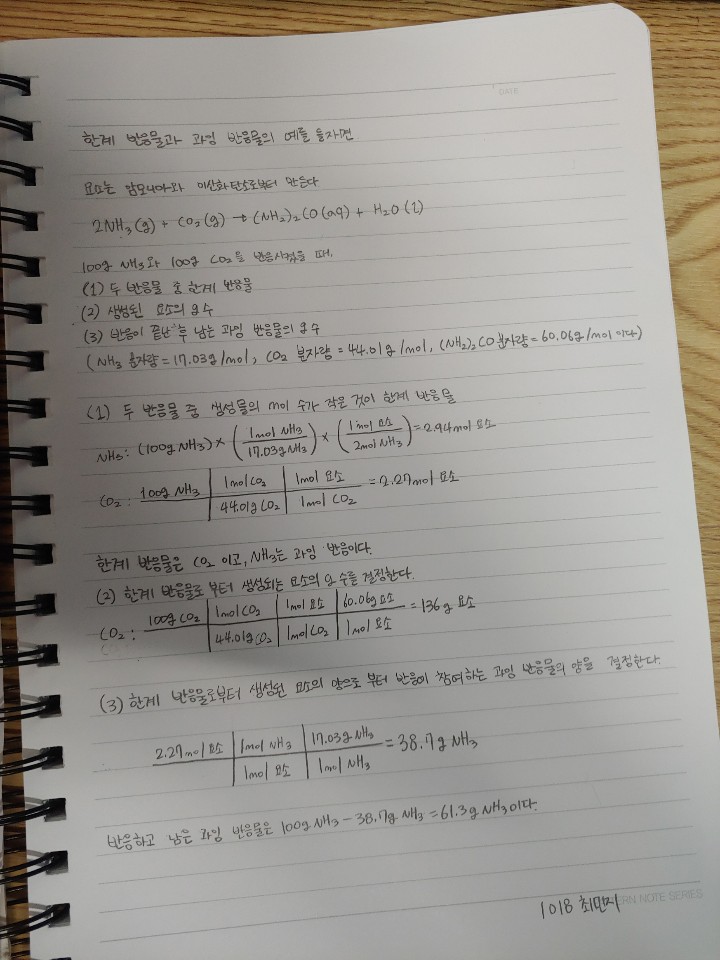 DATE
한계 반응물과 과잉 반응물의 예를 들자면
요소는 암모니아와 이산화탄소로부터 만든다
2NH₃(g) + CO₂(g) → (NH₂)₂CO(aq) + H₂O(l)
100g NH₃와 100g CO₂를 반응시켰을 때,
(1) 두 반응물 중 한계 반응물
(2) 생성된 요소의 g수
(3) 반응이 끝난 후 남는 과잉 반응물의 g수
(NH₃ 분자량 = 17.03g/mol, CO₂ 분자량 = 44.01g/mol, (NH₂)₂CO 분자량 = 60.06g/mol 이다)
(1) 두 반응물 중 생성물의 mol 수가 작은 것이 한계 반응물
NH₃: (100g NH₃) × (1mol NH₃ / 17.03g NH₃) × (1mol 요소 / 2mol NH₃) = 2.94mol 요소
CO₂ : 100g NH₃ | 1mol CO₂ | 1mol 요소 = 2.27mol 요소
44.01g CO₂ | 1mol CO₂
한계 반응물은 CO₂ 이고, NH₃는 과잉 반응이다.
(2) 한계 반응물로 부터 생성되는 요소의 g 수를 결정한다.
CO₂ : 100g CO₂ | 1mol CO₂ | 1mol 요소 | 60.06g 요소 = 136g 요소
44.01g CO₂ | 1mol CO₂ | 1mol 요소
(3) 한계 반응물로부터 생성된 요소의 양으로 부터 반응이 참여하는 과잉 반응물의 양을 결정한다.
2.27mol 요소 | 1mol NH₃ | 17.03g NH₃ = 38.7g NH₃
1mol 요소 | 1mol NH₃
반응하고 남은 과잉 반응물은 100g NH₃ - 38.7g NH₃ = 61.3g NH₃이다.
1018 최민지
RN NOTE SERIES